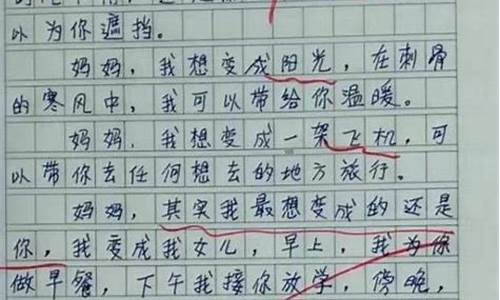 以为你遮挡。
妈妈，我想变成阳光，在刺骨
的寒风中，我可以带给你温暖。
妈妈，我想变成一架飞机，可
以带你去任何想去的地方旅行。
妈妈，其实我最想变成的还是
你，我变成我女儿，早上，我为你
做早餐，下午我接你放学，傍晚，